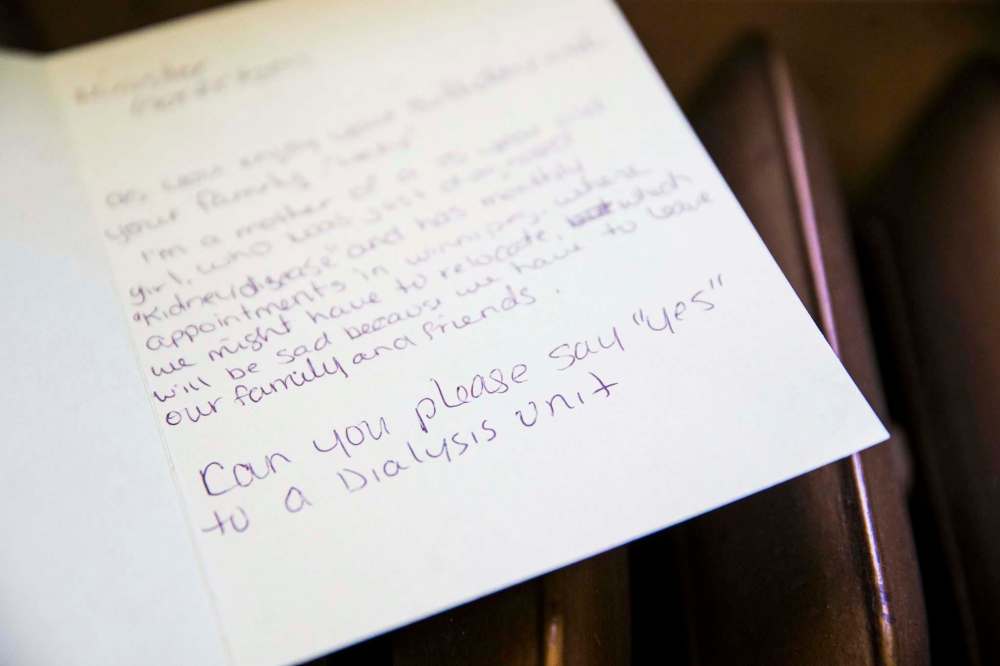 Minister
as you enjoy your birthday with
your family
I'm a mother of a year old
girl, who was just diag
"Kidney disease" and has monthly
appointments in winnipeg, where
we might have to relocate, which
will be sad because we have to leave
our family and friends.
Can you please say "yes"
to a Dialysis unit